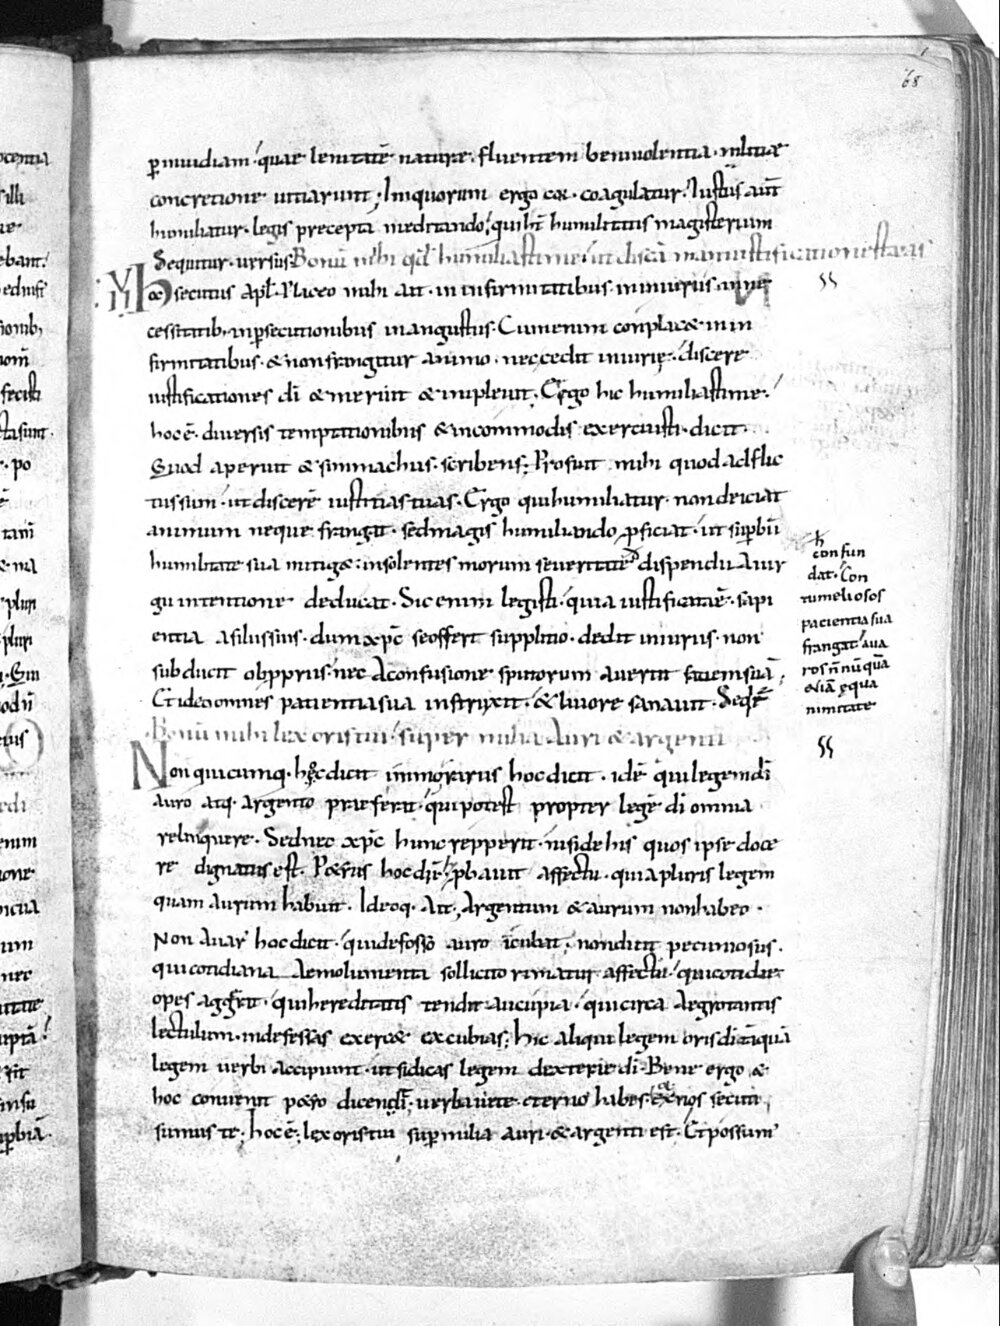 68
ꝑ inuidiam quae lenitatē naturę fluentem beniuolentia militiae
concretione uitiarunt; In quorum ergo cor coagulatur. Iustus aut̄
humiliatur legis precepta meditando quib; humilitatis magisterium
Sequitur uersus Bonū mihi qđ humiliasti me ut discā iustificationes tuas
secutus Apłs Placeo mihi ait in infirmitatibus in iniuriis in ne
cessitatib; in ꝑsecutionibus in angustiis. Cum enim conplacet in in
firmitatibus & non frangitur animo nec cedit iniurię discere
iustificationes dī & meruit & impleuit. Ergo hic humiliasti me
hoc ē diuersis temptationibus & incommodis exercuisti dicit.
Quod aperuit & simmachus scribens; Profuit mihi quod adflic
tus sum ut discerē iustitias tuas. Ergo qui humiliatur non deiciat
animum neque frangat sed magis humiliando ꝓficiat ut supbū
humilitate sua mitiget insolentes morum seueritate dispendii Aur
gu intentione deducat. Sic enim legisti quia iustificata ē sapi
entia a filiis suis dum xp̄c se offert supplicio dedit iniuriis non
subduxit obpropriis nec A confusione sputorum auertit faciem suā;
Et ideo omnes patientia sua instruxit & liuore sanauit. Seqr̄
Bonū mihi lex oris tui super milia Auri & argenti
Non quicumq; hęc dicit in moribus hoc dicit idē qui legem dī
auro atq; argento praeferat qui potest propter legē dī omnia
relinquere. Sed nec xp̄c hunc repperit nisi de his quos ipse doce
re dignatus est. Petrus hoc dix̄ & ꝓbauit affectu quia pluris legem
quam aurum habuit. Ideoq; Ait Argentum & aurum non habeo
Non Auar' hoc dicit qui defosso auro incubat non dicit pecuniosus
qui cotidiana Aemolumenta sollicito rimatur affectu qui cotidie
opes aggerat qui hereditatis tendit aucupia qui circa Aegrotantis
lectulum indefessas exercet excubias; hic aliqui legem oris dī tāquā
legem uerbi accipiunt ut si dicas legem dexterae dī. Bene ergo &
hoc conuenit petro dicendi uerba uitę eternę habes & nos secuti
sumus te; hoc ē lex oris tui sup milia auri & argenti est. Et possum'
confun
dat. Con
tumeliosos
pacientia sua
frangat aua
ros n̄ nūquā
etiā ęqua
nimitate